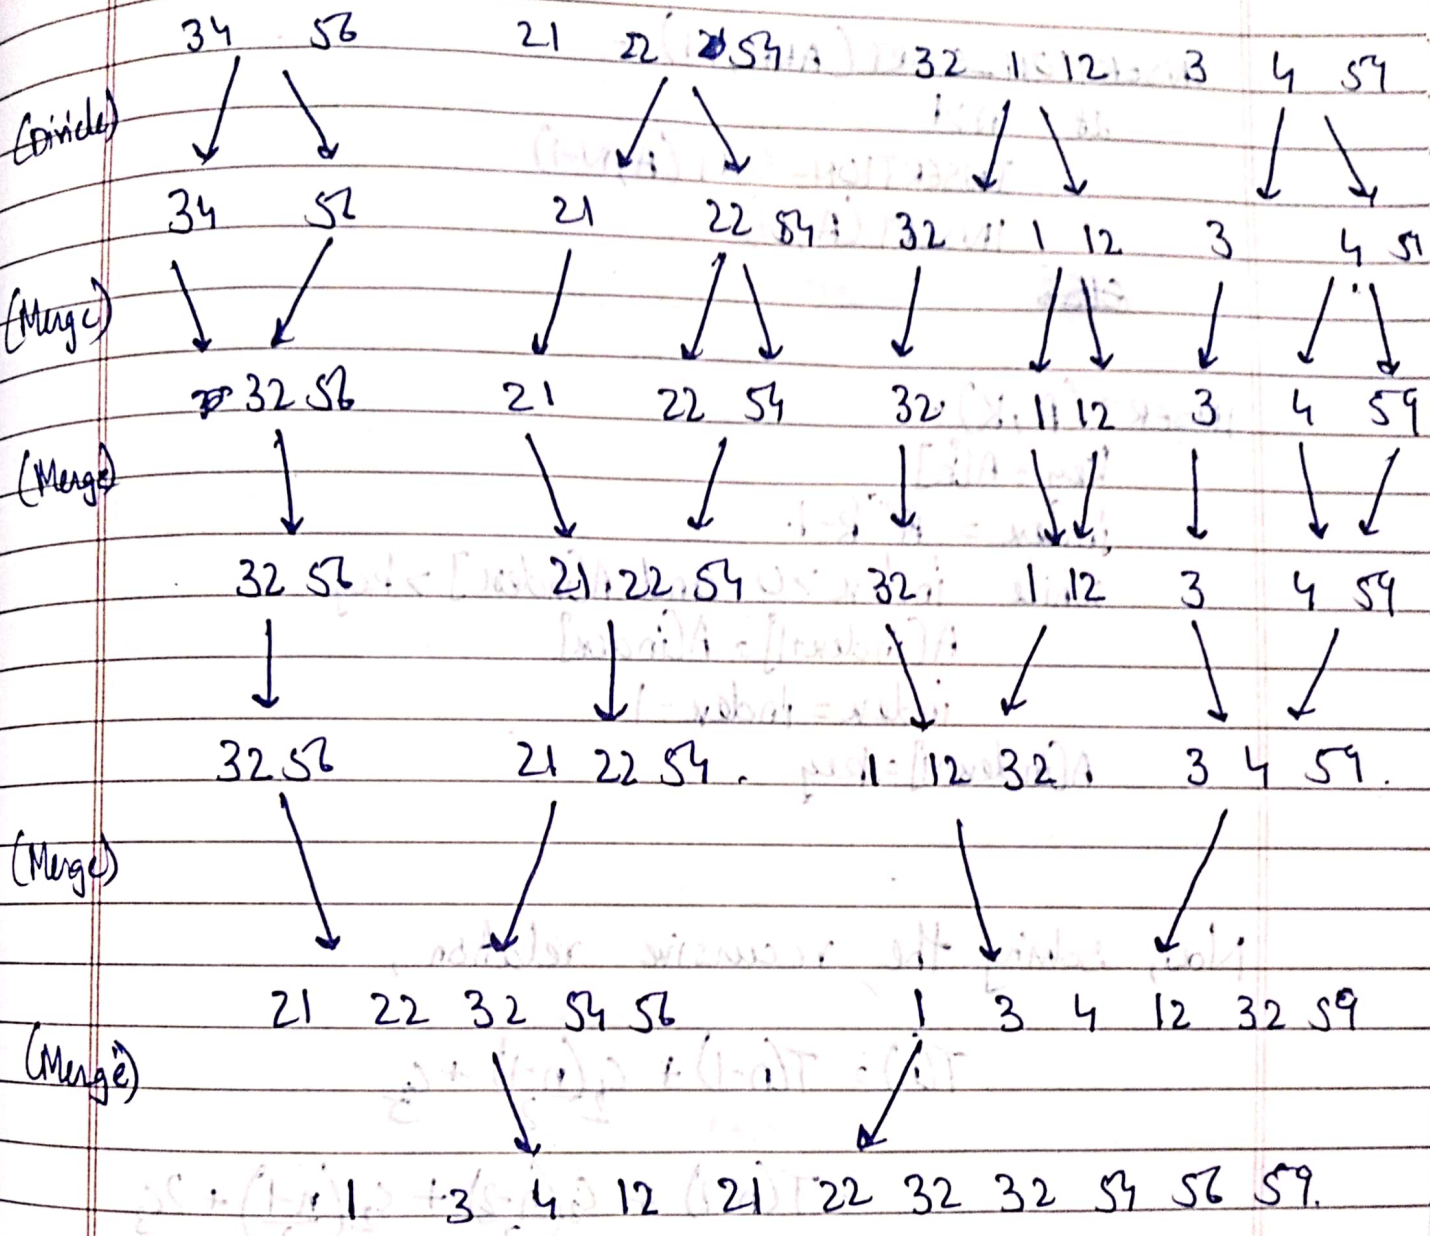 34 56 21 22 54 32 1 12 3 4 59
(Divide)
34 56 21 22 54 32 1 12 3 4 59
(Merge)
32 56 21 22 54 32 1 12 3 4 59
(Merge)
32 56 21 22 54 32 1 12 3 4 59
32 56 21 22 54 1 12 32 3 4 59
(Merge)
21 22 32 54 56 1 3 4 12 32 59
(Merge)
1 3 4 12 21 22 32 32 54 56 59